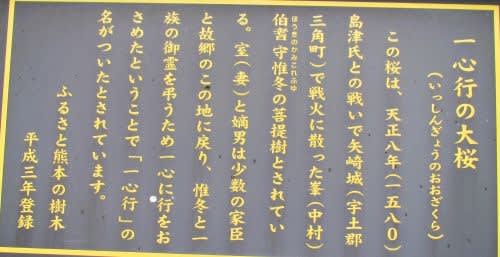 一心行の大桜
（いっしんぎょうのおおざくら）
この桜は、天正八年（一五八〇）
島津氏との戦いで矢崎城（宇土郡
三角町）で戦火に散った峯（中村）
伯耆守惟冬の菩提樹とされてい
ほうきのかみこれふゆ
る。室（妻）と嫡男は少数の家臣
と故郷のこの地に戻り、惟冬と一
族の御霊を弔うため一心に行をお
さめたということで「一心行」の
名がついたとされています。
ふるさと熊本の樹木
平成三年登録